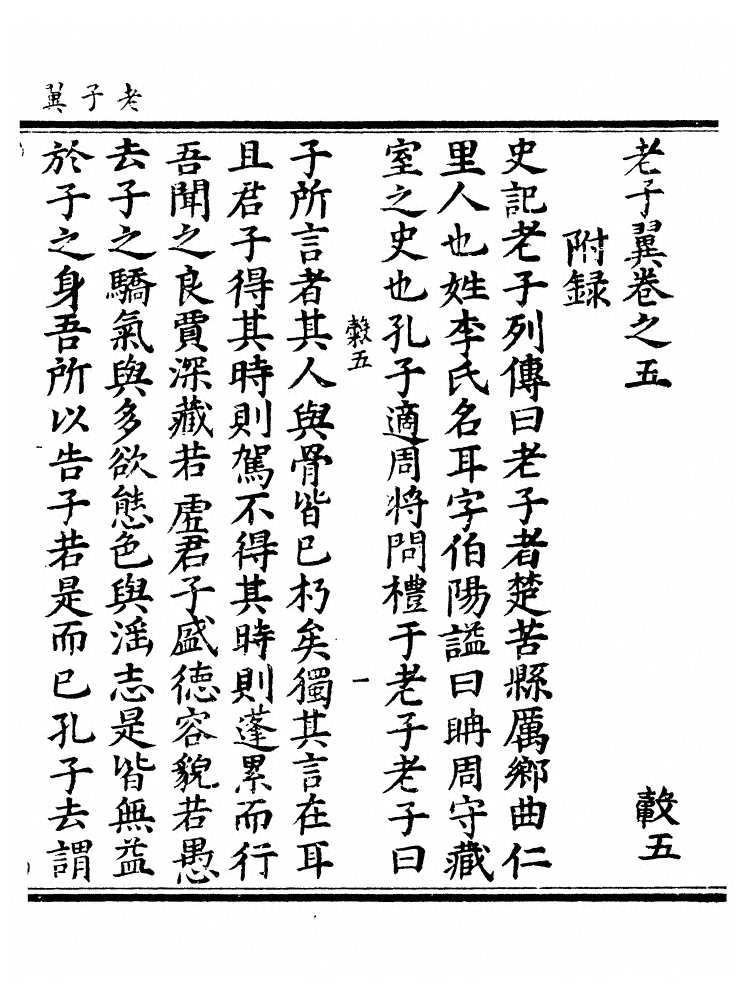 老子翼
老子翼卷之五
㲄五
附録
史記老子列傳曰老子者楚苦縣厲鄉曲仁
里人也姓李氏名耳字伯陽謚曰聃周守藏
室之史也孔子適周將問禮于老子老子曰
五
一
子所言者其人與骨皆已朽矣獨其言在耳
且君子得其時則駕不得其時則蓬累而行
吾聞之良賈深藏若虛君子盛德容貌若愚
去子之驕氣與多欲態色與淫志是皆無益
於子之身吾所以告子若是而已孔子去謂